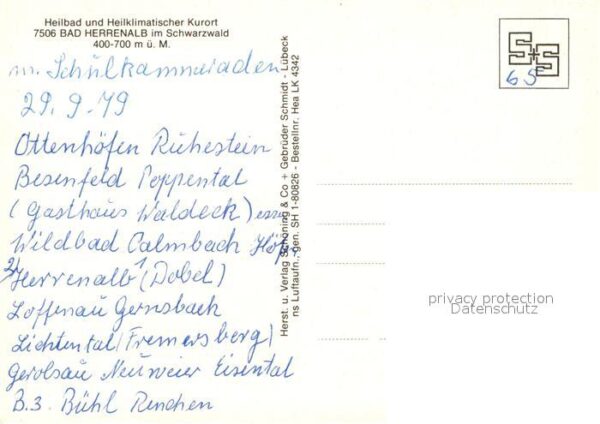 Heilbad und Heilklimatischer Kurort
7506 BAD HERRENALB im Schwarzwald
400-700 m ü. M.
m. Schulkammeraden
29.9.79
Ottenhöfen Ruhestein
Besenfeld Poppental
(Gasthaus Waldeck) essen
Wildbad Calmbach Höfen
2) Herrenalb 1 (Dobel)
Loffenau Gernsbach
Lichtental (Fremersberg)
Gerolsau Neuweier Eisental
B.3 Bühl Renchen
Herst. u. Verlag Schöning & Co + Gebrüder Schmidt - Lübeck
ns Luftaufn. gen. SH 1-80826 - Bestellnr. Hea LK 4342
S+S
65
privacy protection
Datenschutz